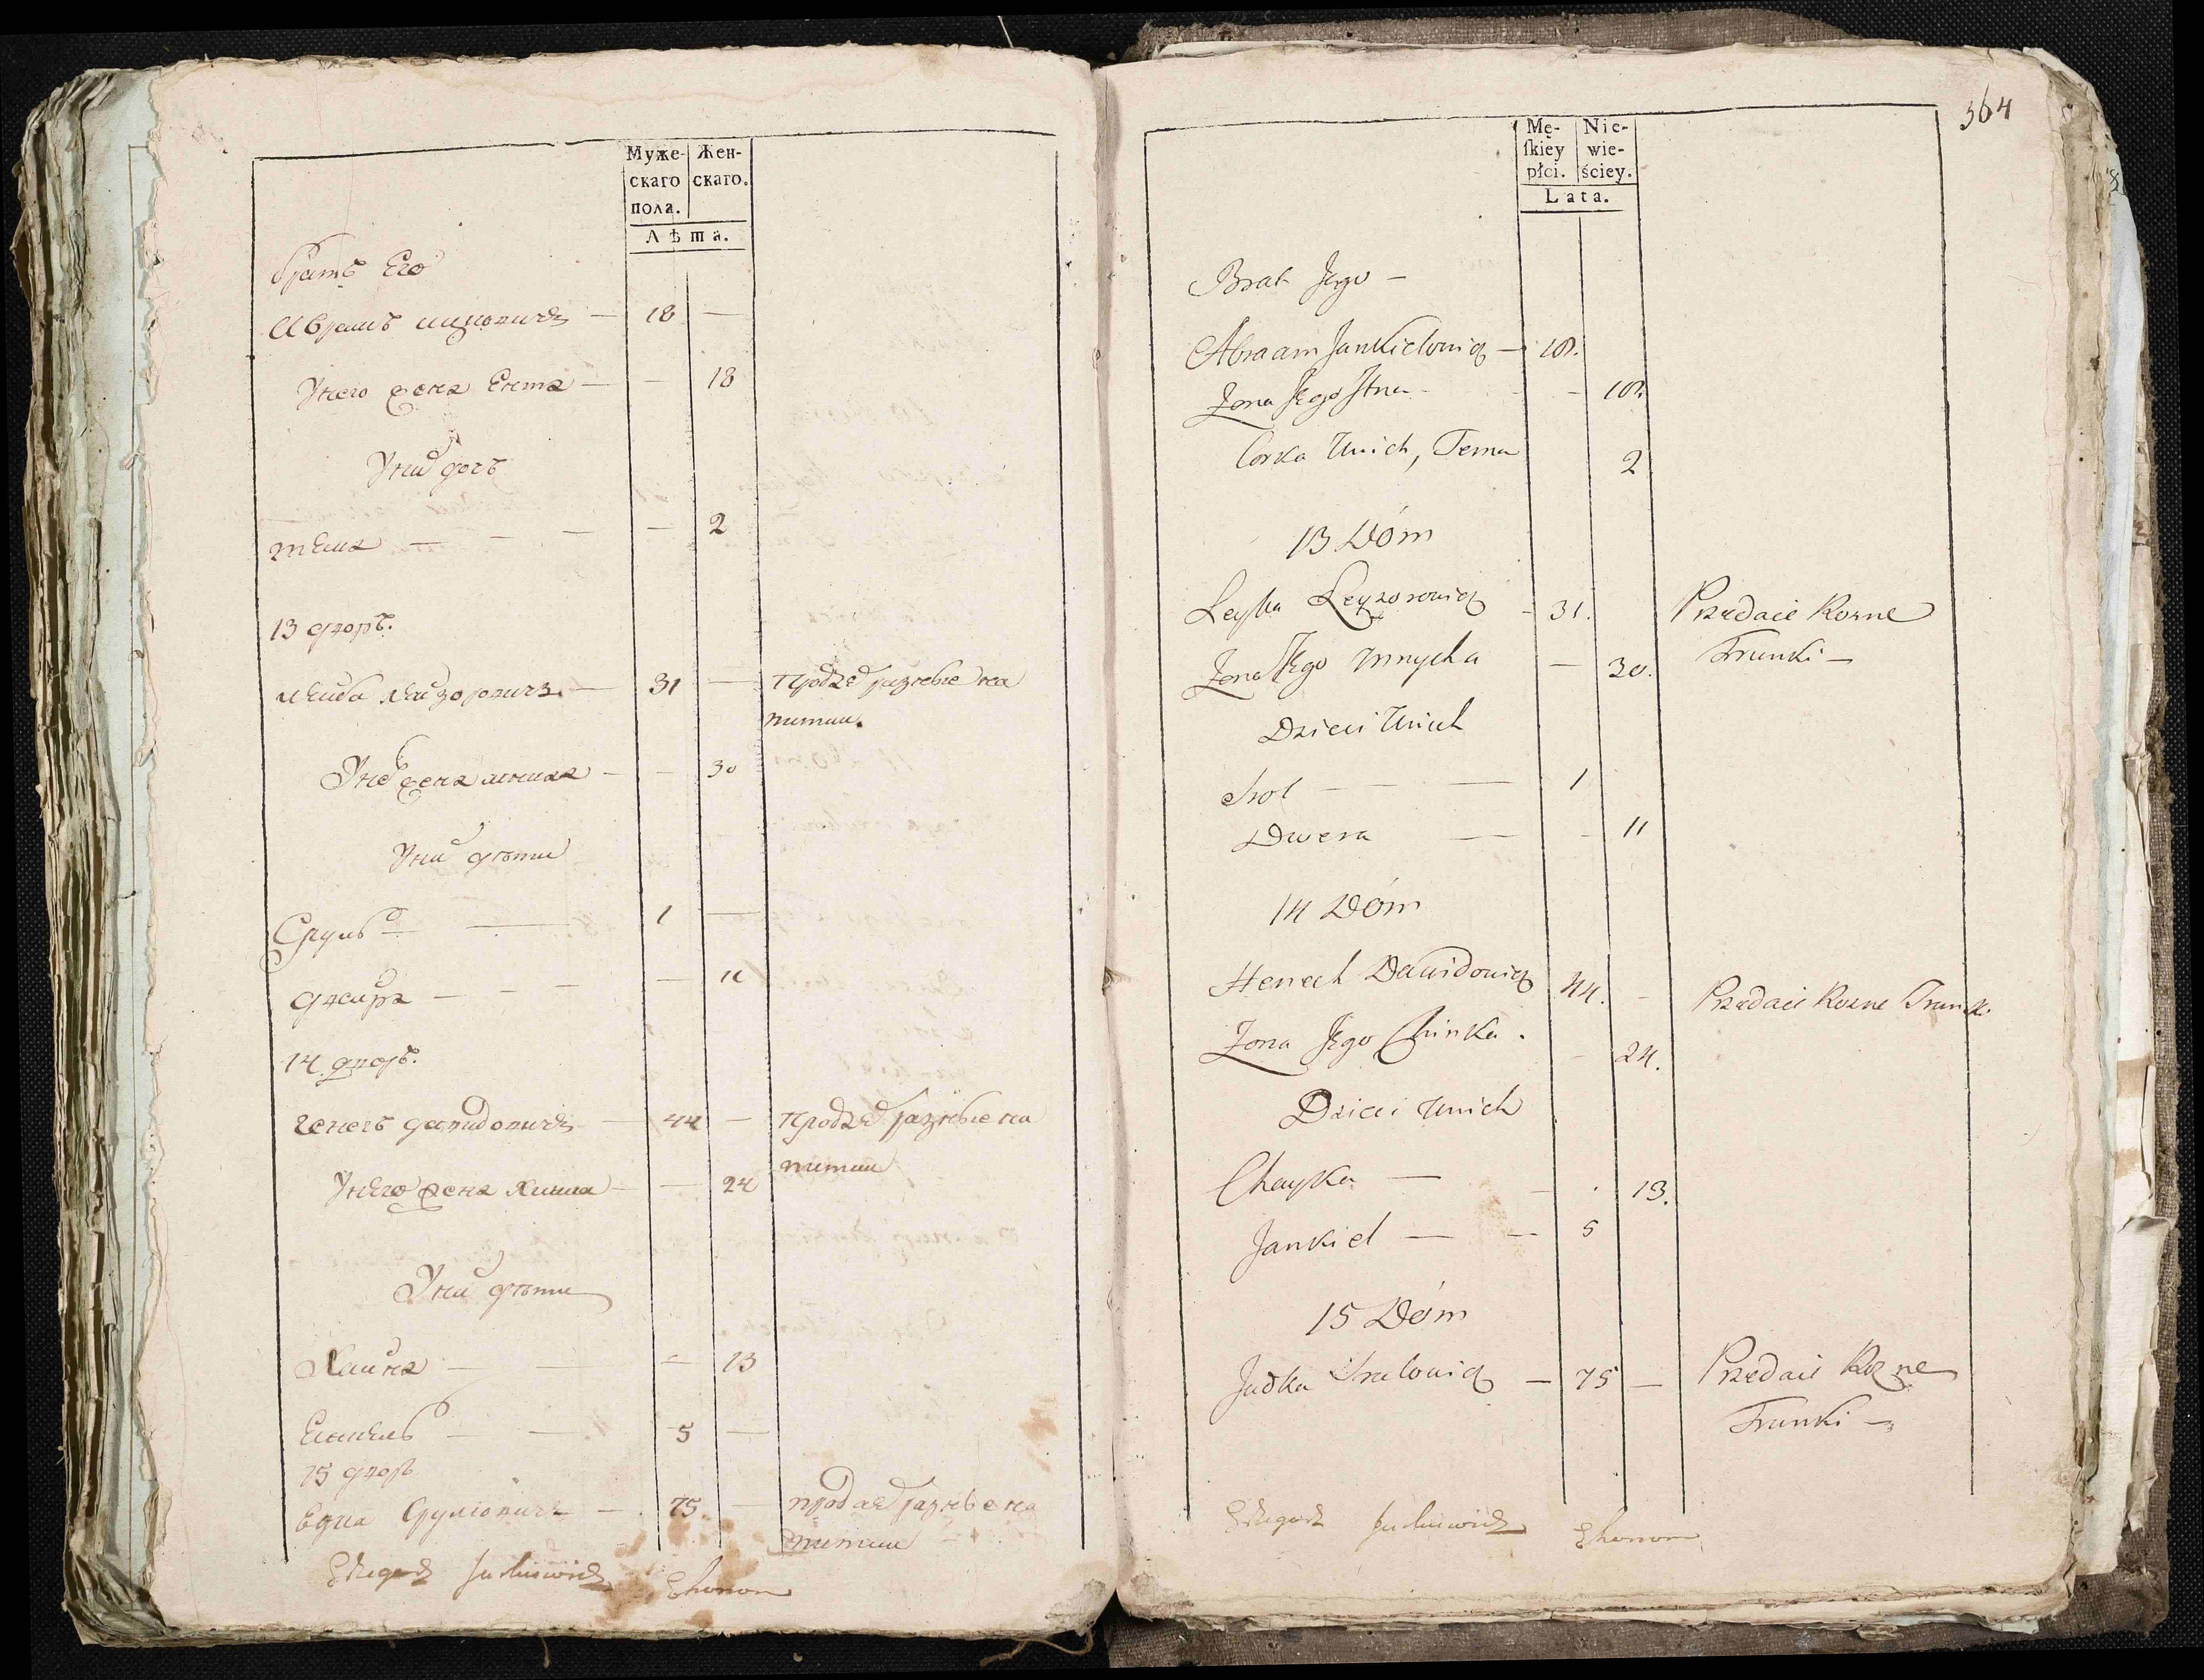 Муже- Жен-
скаго скаго.
пола.
Лѣта.
братъ Его
Абрамъ ицковичъ — 18 —
Унего жена Ента — — 18
Уних дочь
тема — — — — 2
13 дворъ.
леиба леизоровичъ — 31 — продаеᵗ разные на
питки.
Унего жена мниха — — 30
Уних дѣти
Сруль — — 1 —
двеира — — — — 11
14 дворъ.
генехъ давидовичъ — 44 — продаеᵗ разные на
питки
Унего жена хинка — — 24
Уних дѣти
Хаика — — — 13
Енкель — — 5 —
15 дворъ
Юдка Срулювичъ — 75. — продаеᵗ разные на
питки
Ekonom
364
Mę- Nie-
ſkiey wie-
płci. ściey.
Lata.
Brat Jego —
Abraam Jankielowicz — 18.
Zona Jego Itna — — 18.
Corka Unich, Tema 2
13 Dóm
Leyba Leyzorowicz — 31. Przedaie Rozne
Trunki —
Zona Jego Mnycha — 30.
Dzieci Unich
Srol — — 1
Dwera — — 11
14 Dóm
Henoch Dawidowicz 44. — Przedaie Rozne Trunki
Zona Jego Chinka. — 24.
Dzieci Unich
Chayka — — . 13.
Jankiel — — 5
15 Dóm
Judka Srulowicz — 75 — Przedaie Rozne
Trunki —
Ekonom